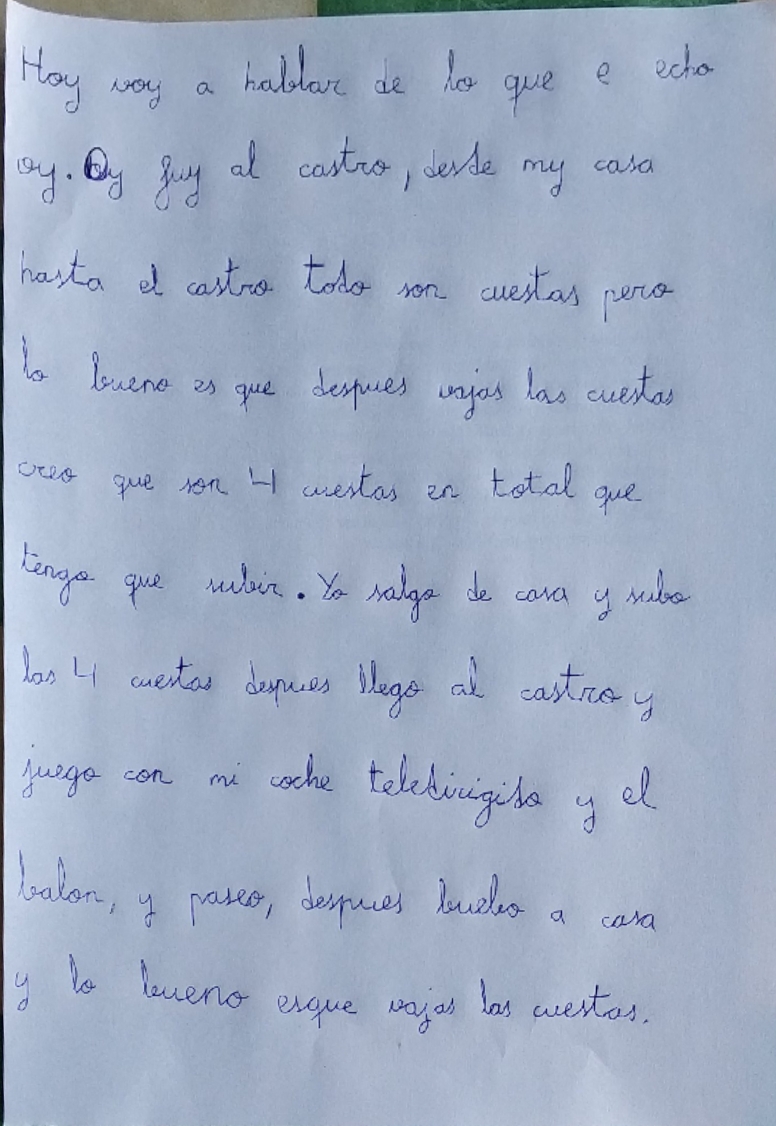 Hoy voy a hablar de lo que e echo
oy. Oy fuy al castro, desde my casa
hasta el castro todo son cuestas pero
lo bueno es que despues vajas las cuestas
creo que son 4 cuestas en total que
tengo que subir. Yo salgo de casa y subo
las 4 cuestas despues llego al castro y
juego con mi coche teledirigido y el
balon, y paseo, despues buelbo a casa
y lo bueno esque vajas las cuestas.